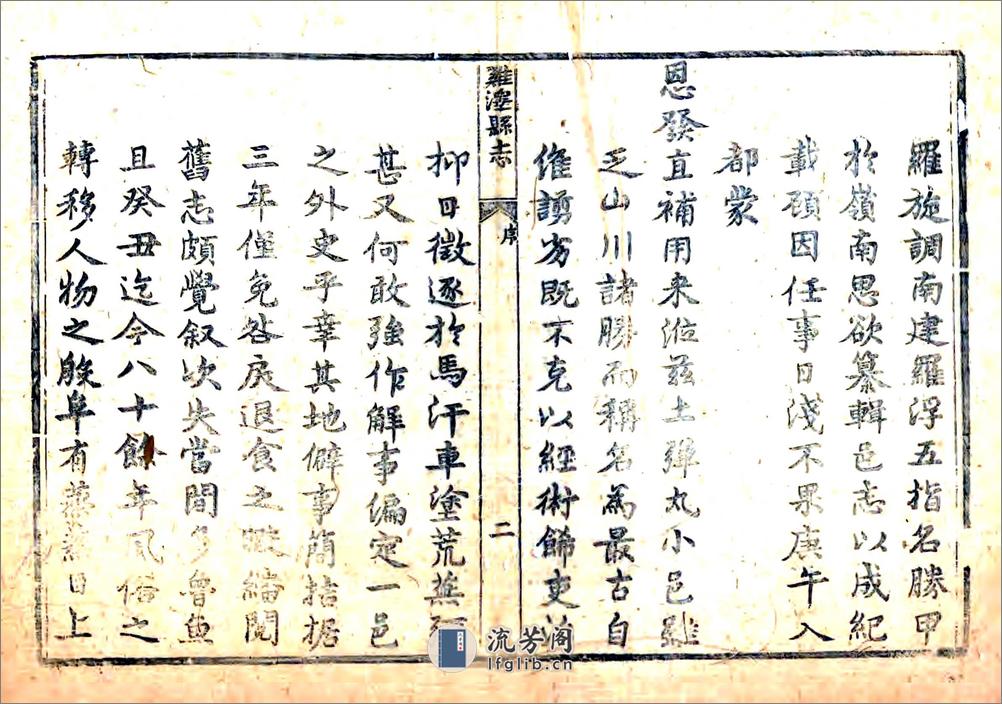 羅旋調南建羅浮五指名勝甲
於嶺南思欲纂輯邑志以成紀
載碩因任事日淺不果庚午入
都蒙
恩發直補用来涖兹土彈丸小邑雖
乏山川諸勝而稱名為最古自
惟譾劣既不克以經術飾吏
雞澤縣志
序
二
抑且徵逐於馬汗車塗荒蕪
甚又何敢強作解事編定一邑
之外史乎幸其地僻事簡拮据
三年僅免咎戾退食之暇繙閱
舊志頗覺叙次失當間多魯魚
且癸丑迄今八十餘年風俗之
轉移人物之殷阜有蒸蒸日上
流芳阁
lfglib.cn